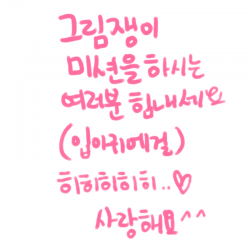 그림쟁이
미션을 하시는
여러분 힘내세요
(입아귀에걸)
히히히히히..♡
사랑해요^^